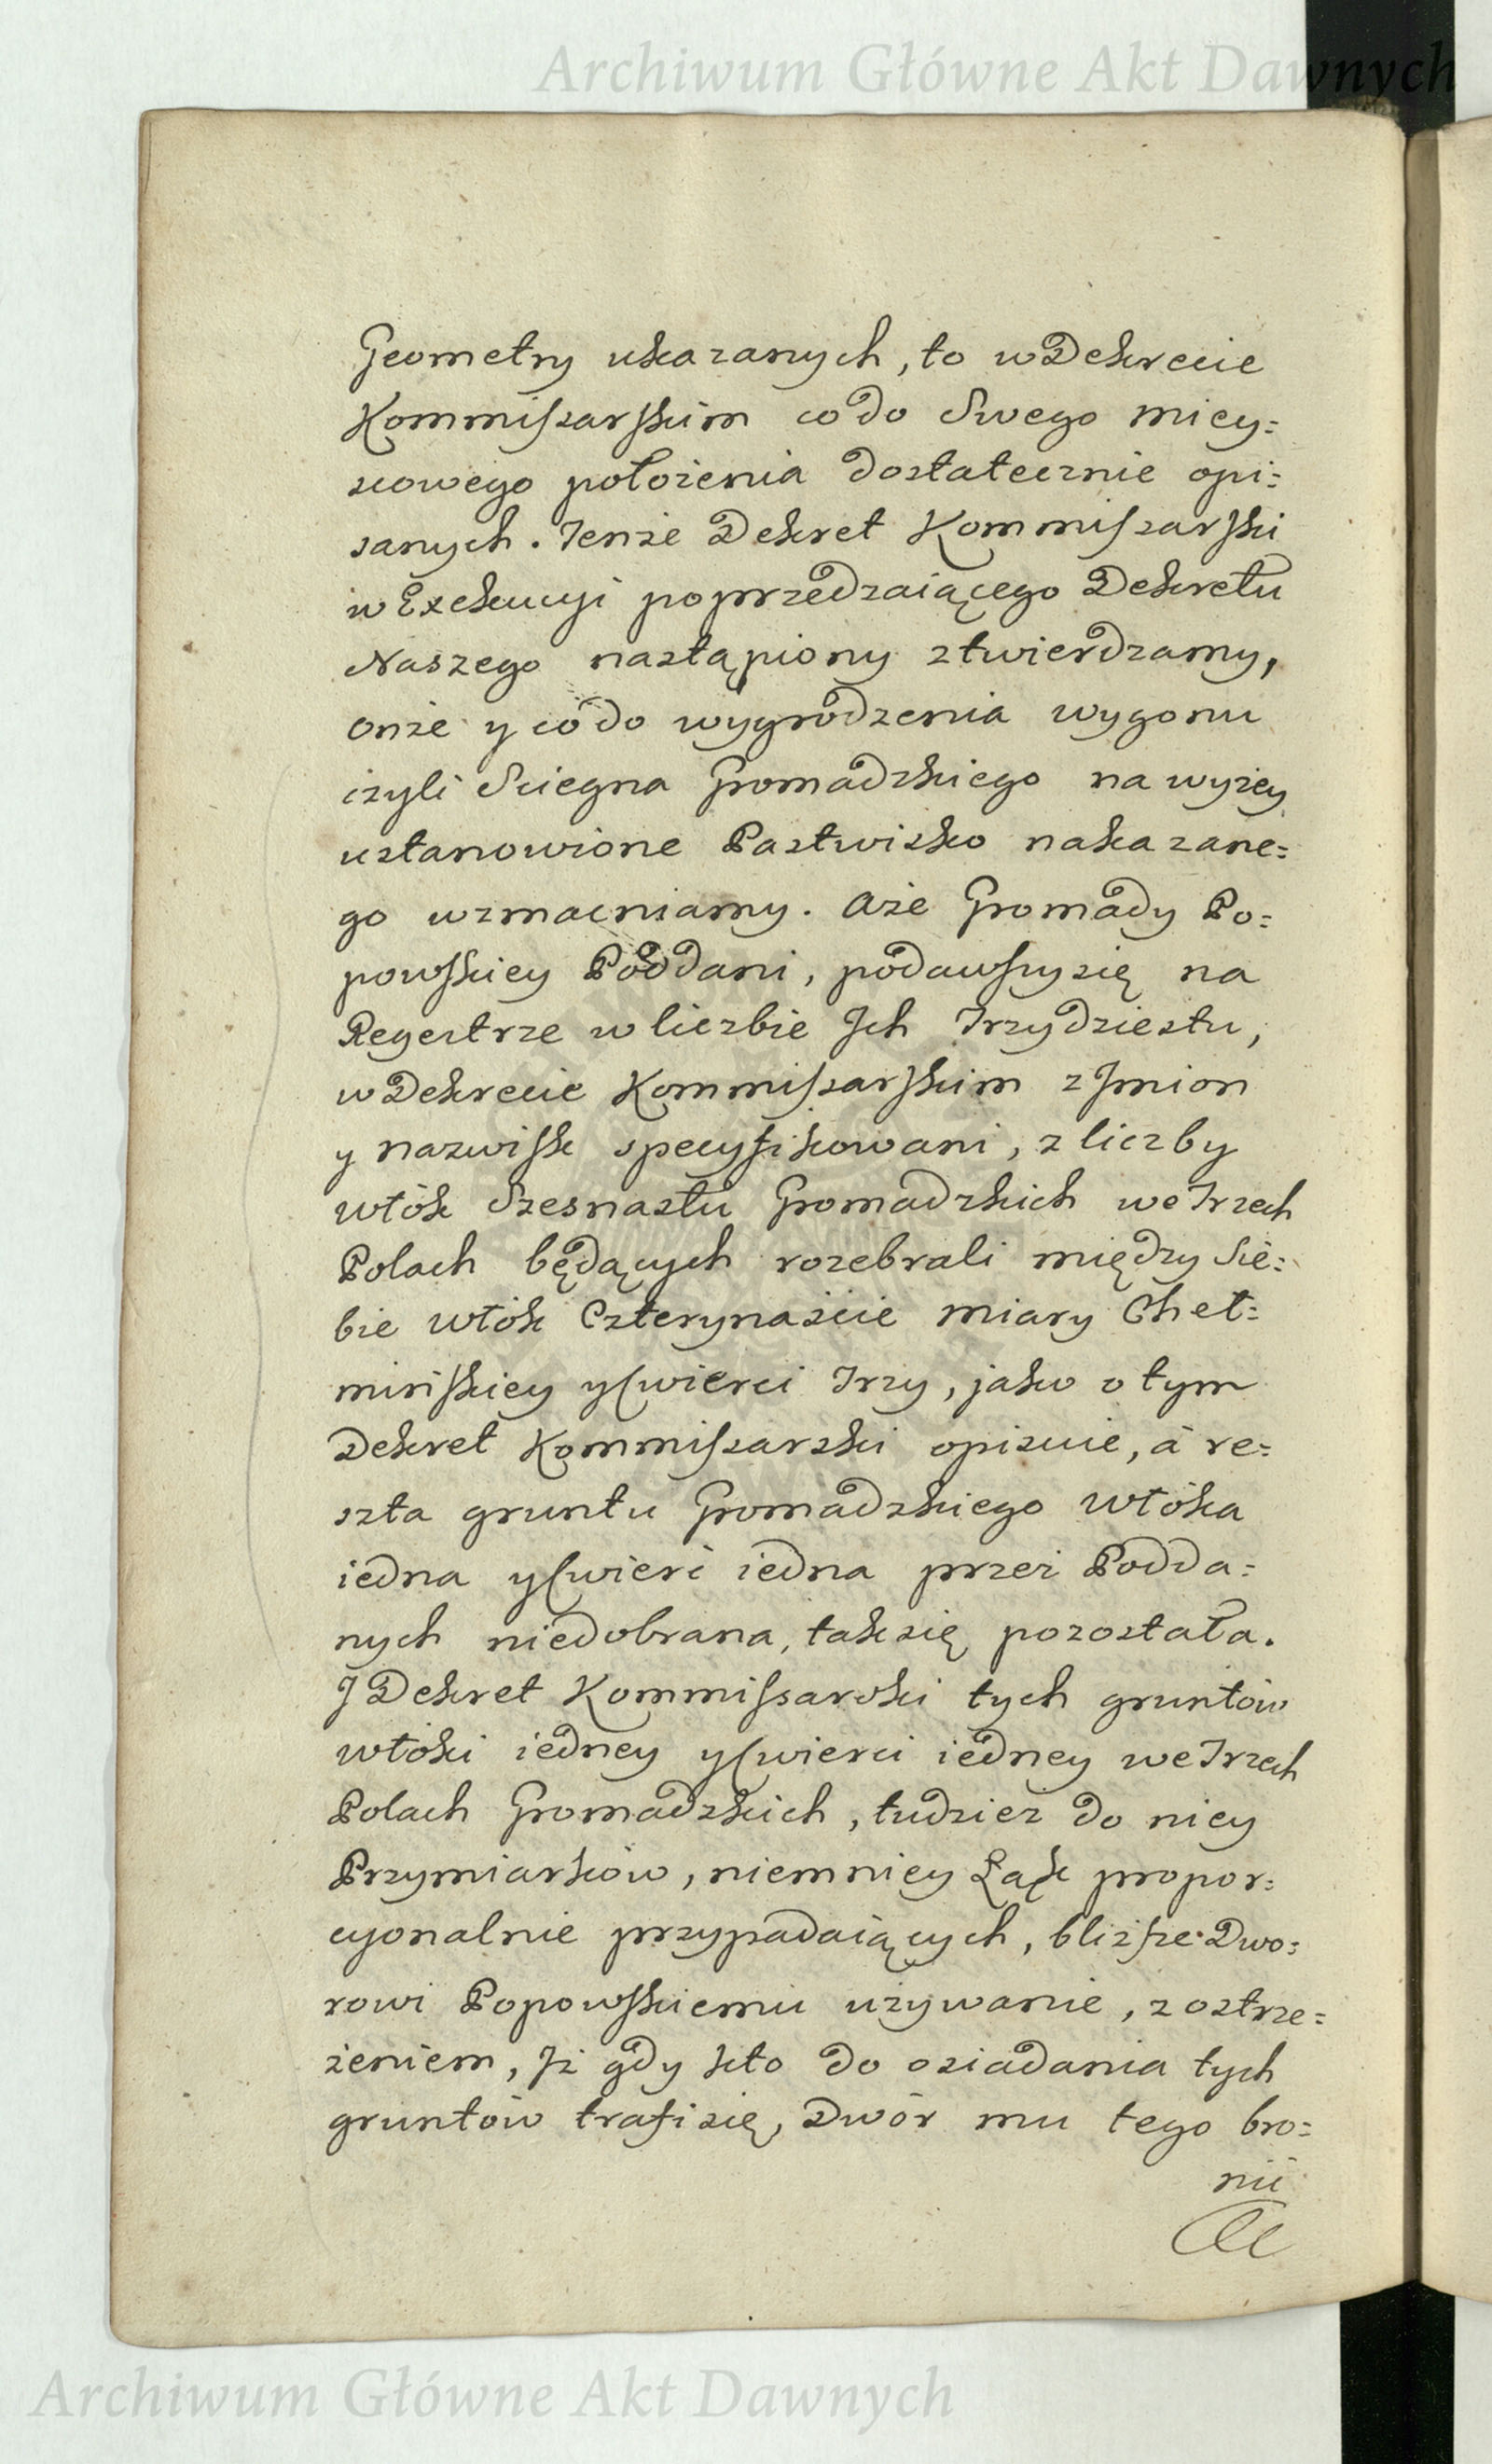 Archiwum Główne Akt Dawnych
Geometry ukazanych, to w Dekrecie
Kommiszarskim co do Swego miey=
scowego położenia dostatecznie opi=
sanych. Tenże Dekret Kommiszarski
w Exekucyi poprzedzaiącego Dekretu
Naszego nastąpiony ztwierdzamy,
onże y co do wygrodzenia wygonu
czyli Sciegna Gromadzkiego na wyżey
ustanowione Pastwisko nakazane=
go wzmacniamy. Aże Gromady Po=
powskiey Poddani, podawszy się na
Regestrze w liczbie Jch Trzydziestu,
w Dekrecie Kommiszarskim z Jmion
y nazwisk specyfikowani, z liczby
włók Szesnastu Gromadzkich we Trzech
Polach będących rozebrali między Sie=
bie włók Czterynaście miary Cheł=
mińskiey y ćwierci Trzy, jako o tym
Dekret Kommiszarski opisuie, á re=
szta gruntu Gromadzkiego Włóka
iedna y ćwierć iedna przez Podda=
nych niedobrana, tak się pozostała.
J Dekret Kommissarski tych gruntów
włóki iedney y ćwierci iedney we Trzech
Polach Gromadzkich, tudzież do niey
Przymiarków, niemniey Łąk propor=
cyonalnie przypadaiących, bliższe Dwo=
rowi Popowskiemu używanie, z ostrze=
żeniem, Jż gdy kto do osiadania tych
gruntów trafi się, Dwór mu tego bro=
nić
Archiwum Główne Akt Dawnych